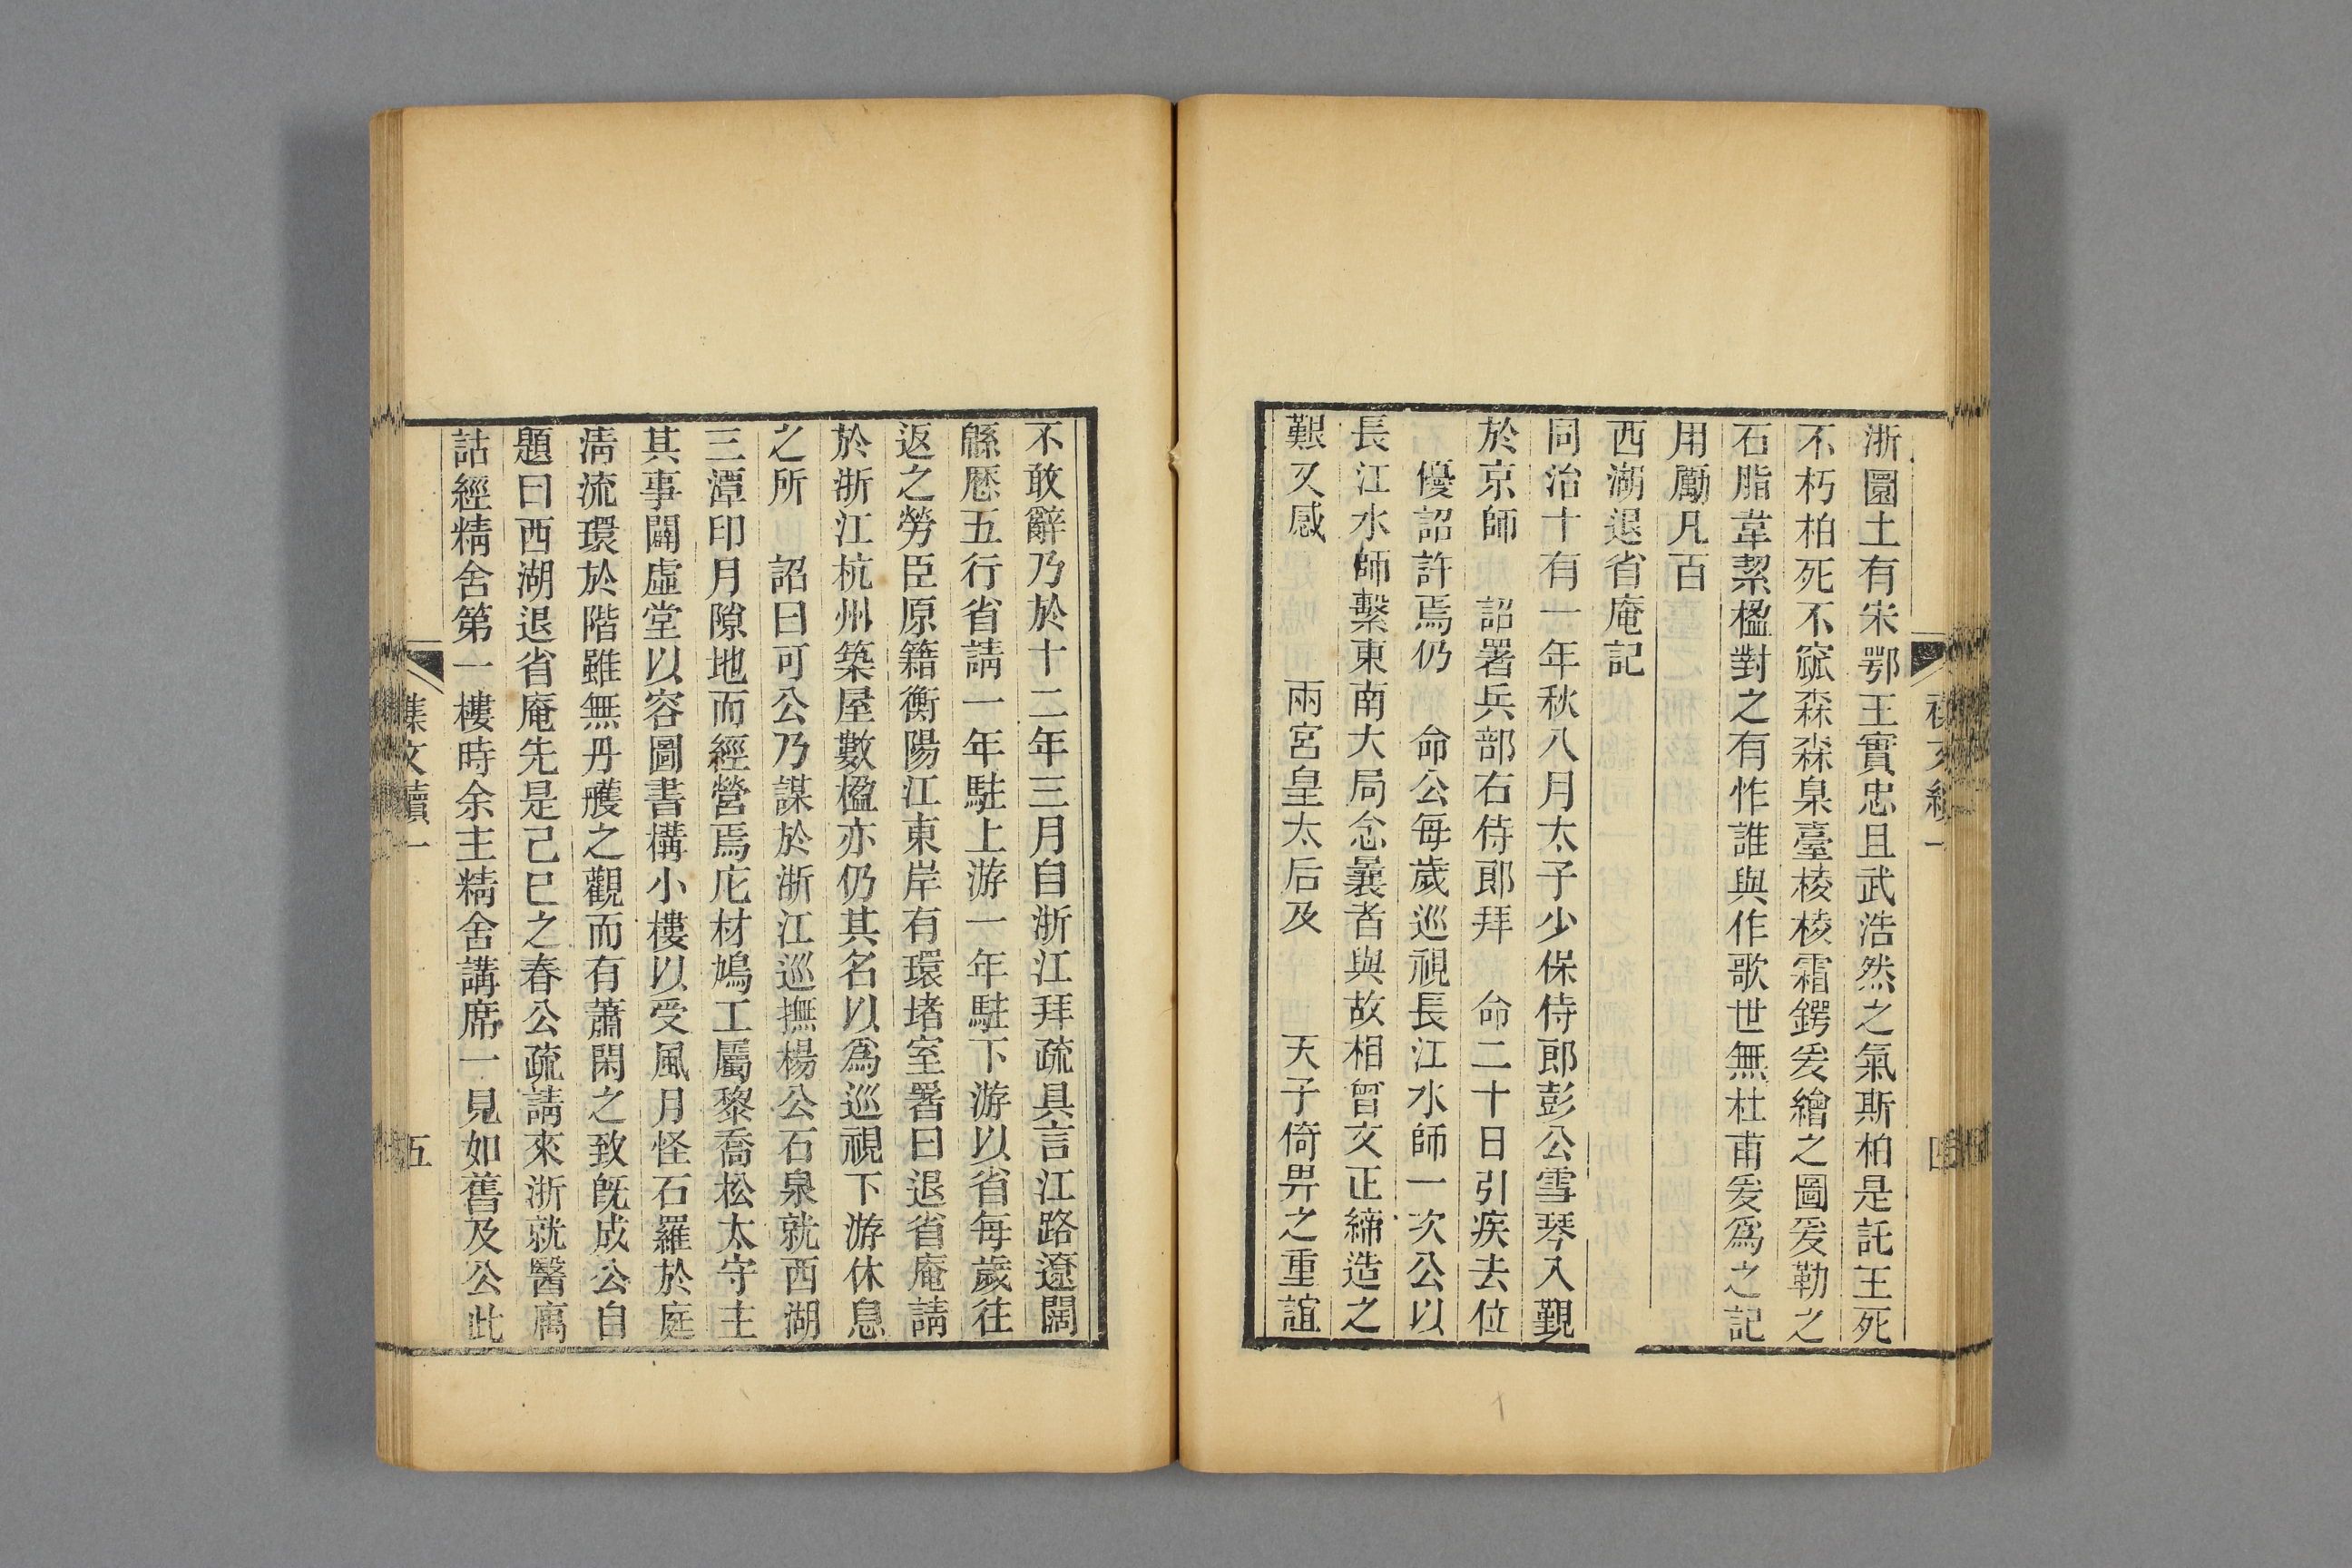 浙圜土有宋鄂王實忠且武浩然之氣斯柏是託王死
不朽柏死不窳森森臬臺棱棱霜鍔爰繪之圖爰勒之
石脂韋絜楹對之有怍誰與作歌世無杜甫爰爲之記
用勵凡百
西湖退省庵記
同治十有一年秋八月太子少保侍郎彭公雪琴入覲
於京師　詔署兵部右侍郎拜　命二十日引疾去位
優詔許焉仍　命公每歲巡視長江水師一次公以
長江水師繫東南大局念曩者與故相曾文正締造之
艱又感　　　兩宮皇太后及　　天子倚畀之重誼
不敢辭乃於十二年三月自浙江拜疏具言江路遼闊
緜歷五行省請一年駐上游一年駐下游以省每歲往
返之勞臣原籍衡陽江東岸有環堵室署曰退省庵請
於浙江杭州築屋數楹亦仍其名以爲巡視下游休息
之所　詔曰可公乃謀於浙江巡撫楊公石泉就西湖
三潭印月隙地而經營焉庀材鳩工屬黎喬松太守主
其事闢虛堂以容圖書構小樓以受風月怪石羅於庭
淸流環於階雖無丹雘之觀而有蕭閑之致旣成公自
題曰西湖退省庵先是己巳之春公疏請來浙就醫寓
詁經精舍第一樓時余主精舍講席一見如舊及公此
襍文續一
五